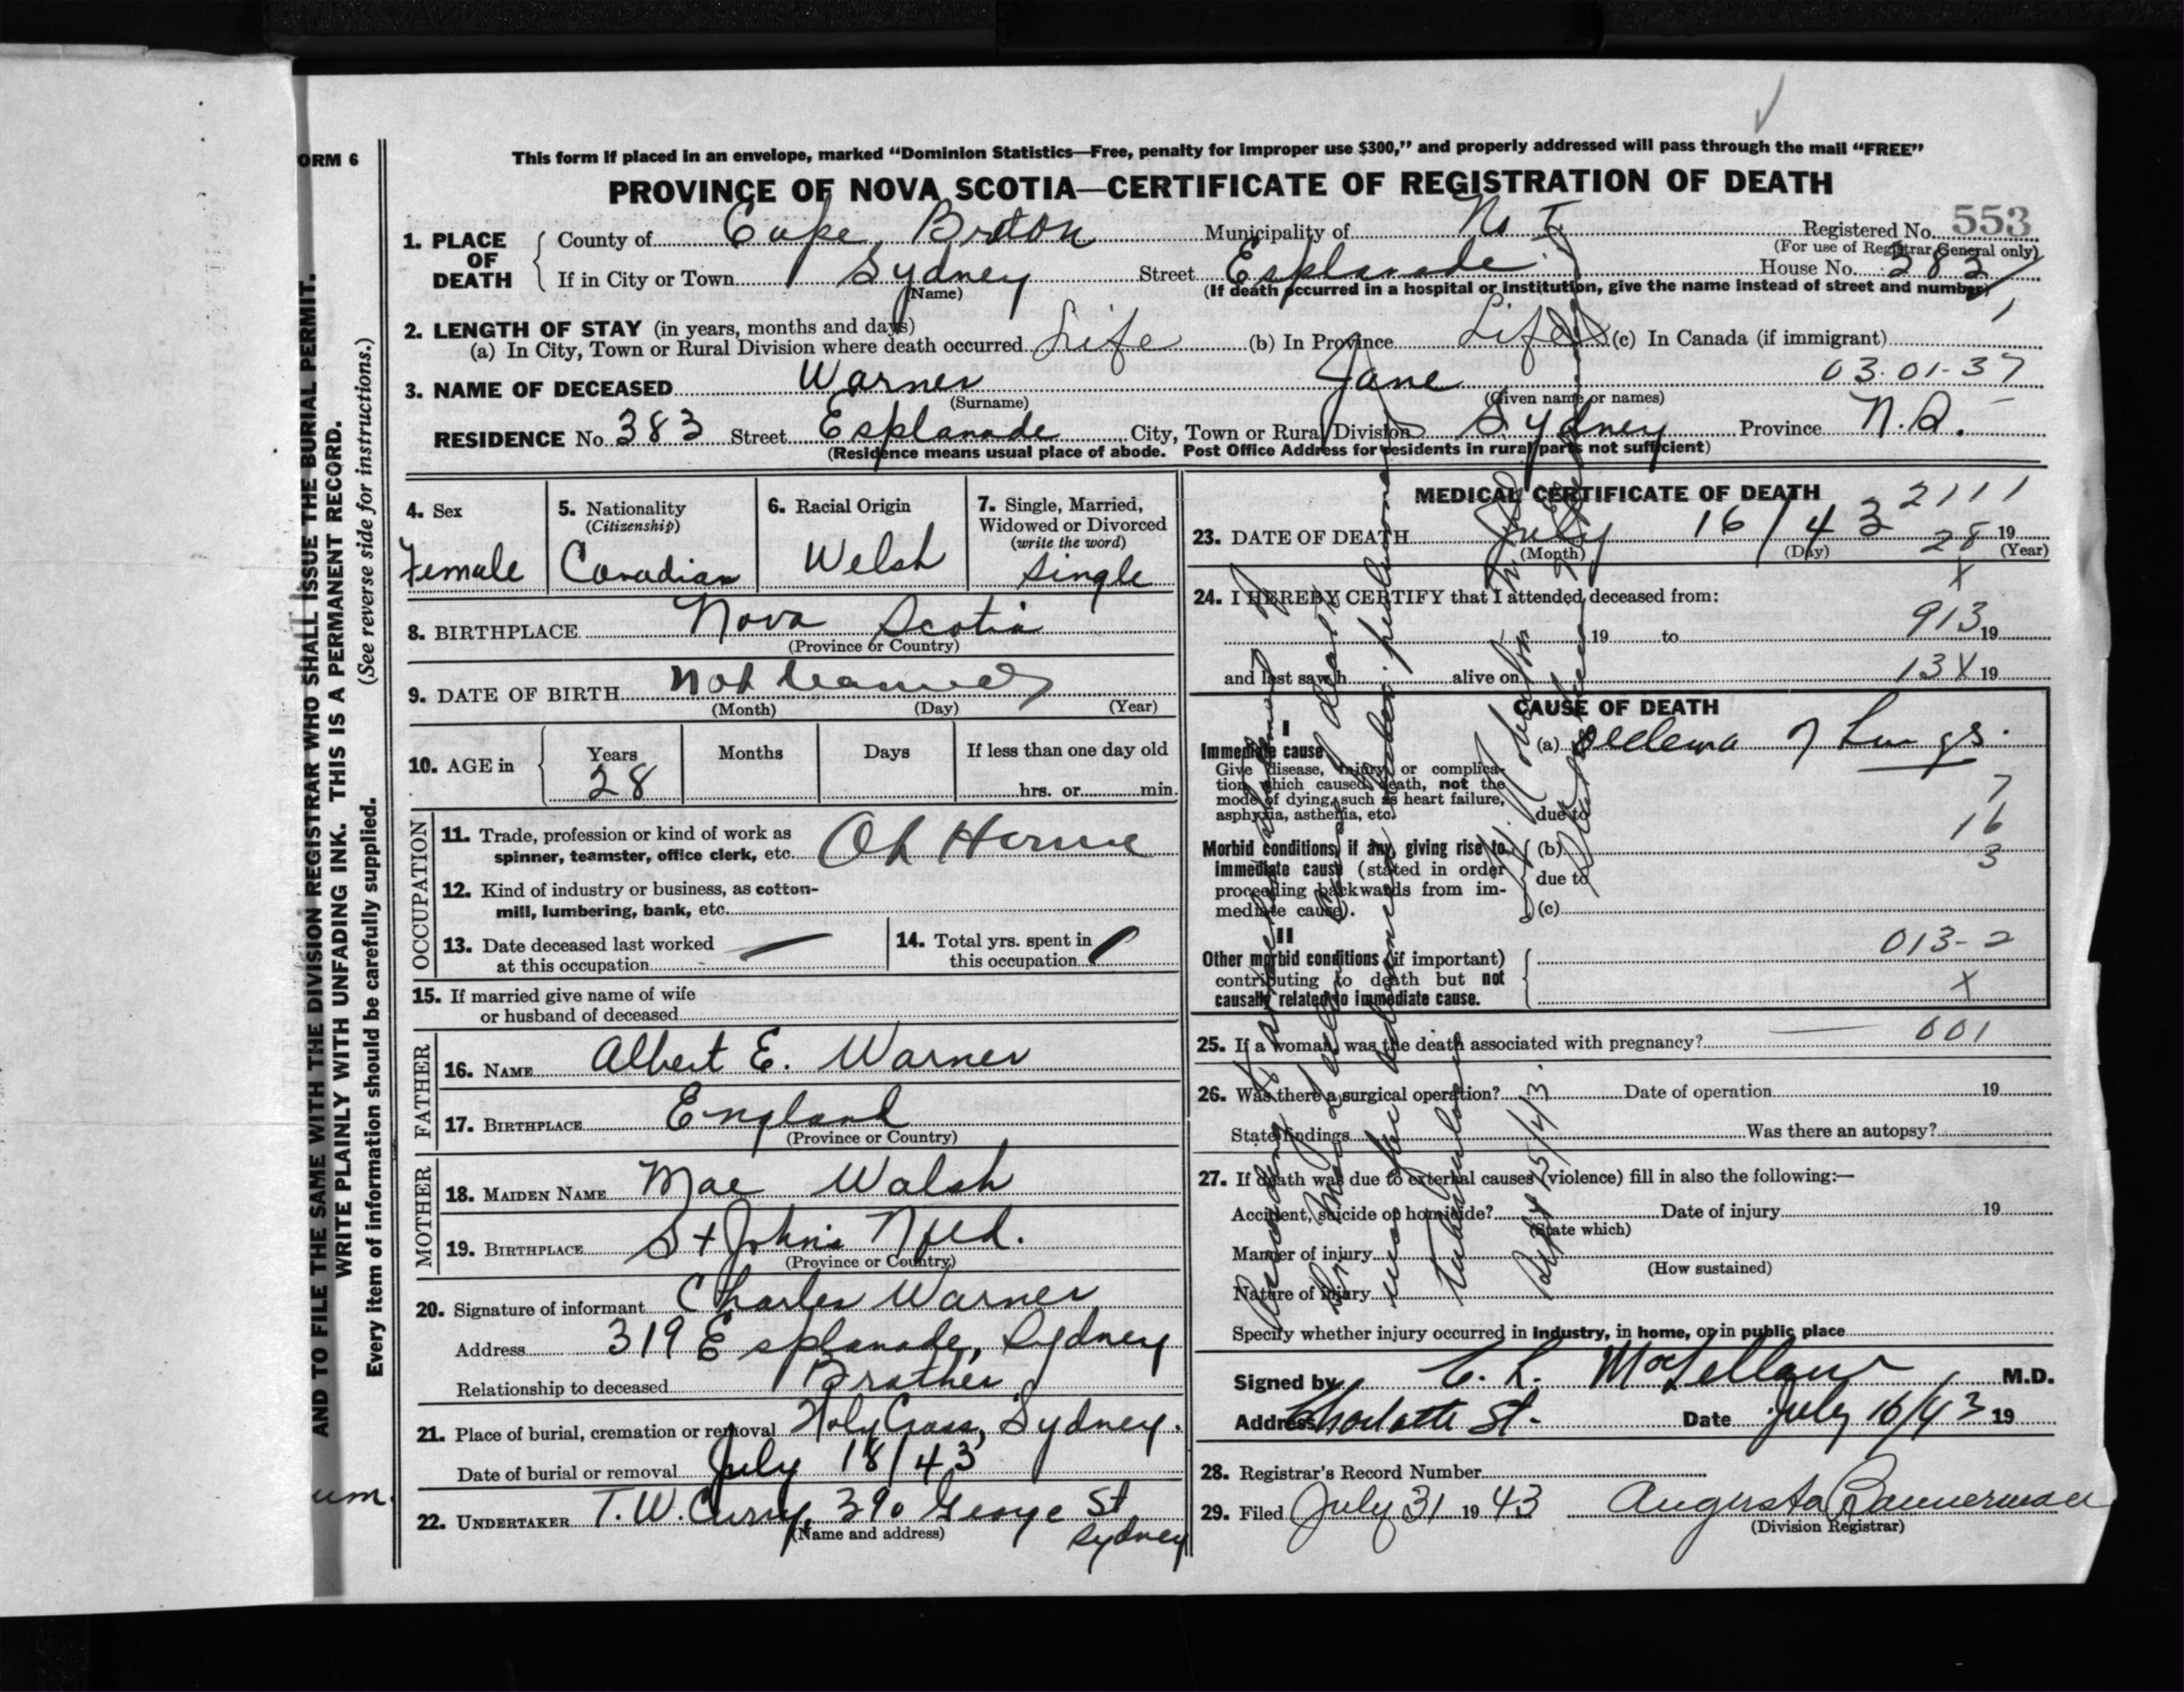 ORM 6
This form if placed in an envelope, marked "Dominion Statistics—Free, penalty for improper use $300," and properly addressed will pass through the mail "FREE"
PROVINCE OF NOVA SCOTIA—CERTIFICATE OF REGISTRATION OF DEATH
1. PLACE OF DEATH
County of Cape Breton Municipality of Registered No. 553
(For use of Registrar General only)
If in City or Town Sydney Street Esplanade House No. 383
(Name) (If death occurred in a hospital or institution, give the name instead of street and number)
2. LENGTH OF STAY (in years, months and days)
(a) In City, Town or Rural Division where death occurred Life (b) In Province Life (c) In Canada (if immigrant)
03.01-37
3. NAME OF DECEASED Warner Jane
(Surname) (Given name or names)
RESIDENCE No. 383 Street Esplanade City, Town or Rural Division Sydney Province N.S.
(Residence means usual place of abode. Post Office Address for residents in rural parts not sufficient)
4. Sex
Female
5. Nationality
(Citizenship)
Canadian
6. Racial Origin
Welsh
7. Single, Married,
Widowed or Divorced
(write the word)
Single
8. BIRTHPLACE Nova Scotia
(Province or Country)
9. DATE OF BIRTH Not
(Month) (Day) (Year)
10. AGE in
Years Months Days If less than one day old
28 hrs. or min.
OCCUPATION
11. Trade, profession or kind of work as
spinner, teamster, office clerk, etc. At Home
12. Kind of industry or business, as cotton-
mill, lumbering, bank, etc.
13. Date deceased last worked
at this occupation —
14. Total yrs. spent in
this occupation
15. If married give name of wife
or husband of deceased
FATHER
16. NAME Albert E. Warner
17. BIRTHPLACE England
(Province or Country)
MOTHER
18. MAIDEN NAME Mae Walsh
19. BIRTHPLACE St Johns Nfld.
(Province or Country)
20. Signature of informant Charles Warner
Address 319 Esplanade, Sydney
Relationship to deceased Brother
21. Place of burial, cremation or removal Holy Cross, Sydney.
Date of burial or removal July 18/43
22. UNDERTAKER T. W. Curry, 390 George St
Sydney
(Name and address)
MEDICAL CERTIFICATE OF DEATH
2111
23. DATE OF DEATH July 16/43 28 19
(Month) (Day) (Year)
X
24. I HEREBY CERTIFY that I attended deceased from:
19 to 913 19
and last saw h alive on 13X 19
CAUSE OF DEATH
I
Immediate cause
Give disease, injury or complica-
tion which caused death, not the
mode of dying, such as heart failure,
asphyxia, asthenia, etc.
(a) Oedema of Lungs.
due to
7
16
3
Morbid conditions, if any, giving rise to
immediate cause (stated in order
proceeding backwards from im-
mediate cause).
(b)
due to
(c)
II
Other morbid conditions (if important)
contributing to death but not
causally related to immediate cause.
013-2
X
25. If a woman, was the death associated with pregnancy? — 001
26. Was there a surgical operation? Date of operation 19
State findings Was there an autopsy?
27. If death was due to external causes (violence) fill in also the following:—
Accident, suicide or homicide? Date of injury 19
(State which)
Manner of injury
(How sustained)
Nature of injury
Specify whether injury occurred in industry, in home, or in public place
Signed by C. L. McLellan M.D.
Address Charlotte St. Date July 16/43 19
28. Registrar's Record Number
29. Filed July 31 1943 Augusta Bannerman
(Division Registrar)
AND TO FILE THE SAME WITH THE DIVISION REGISTRAR WHO SHALL ISSUE THE BURIAL PERMIT.
WRITE PLAINLY WITH UNFADING INK. THIS IS A PERMANENT RECORD.
Every item of information should be carefully supplied. (See reverse side for instructions.)
um.